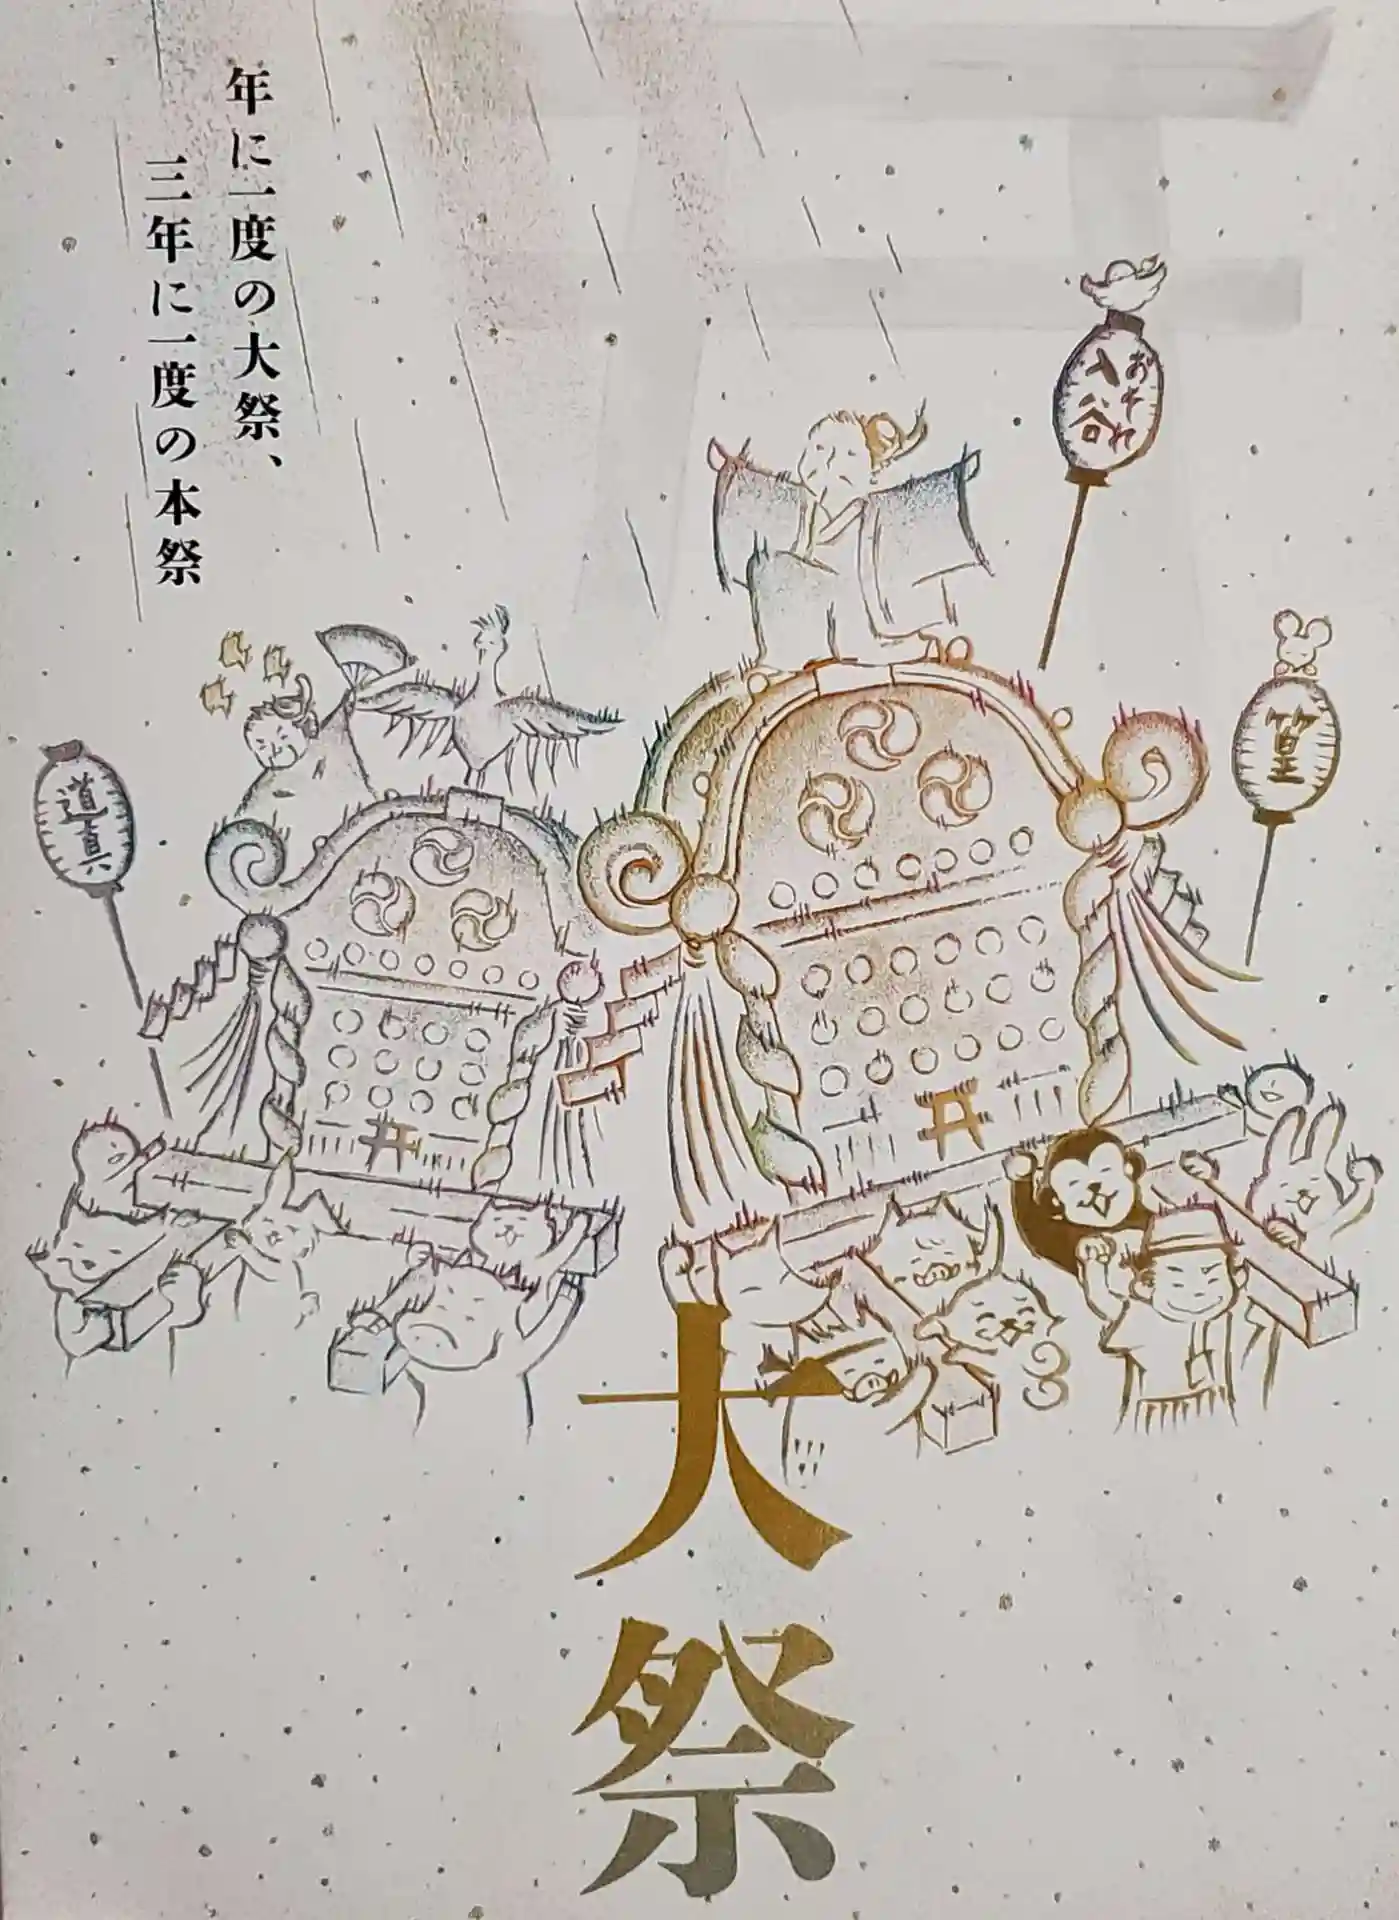 年に一度の大祭、
三年に一度の本祭
おそれ
入谷
篁
道真
大祭